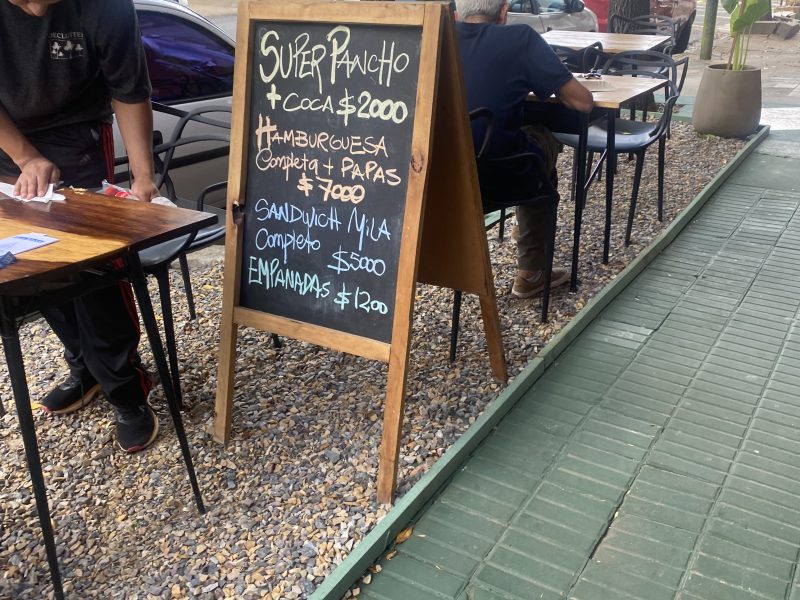 SUPER PANCHO
+ COCA $2000
HAMBURGUESA
Completa + PAPAS
$7000
SANDWICH MILA
Completo $5000
EMPANADAS $1200